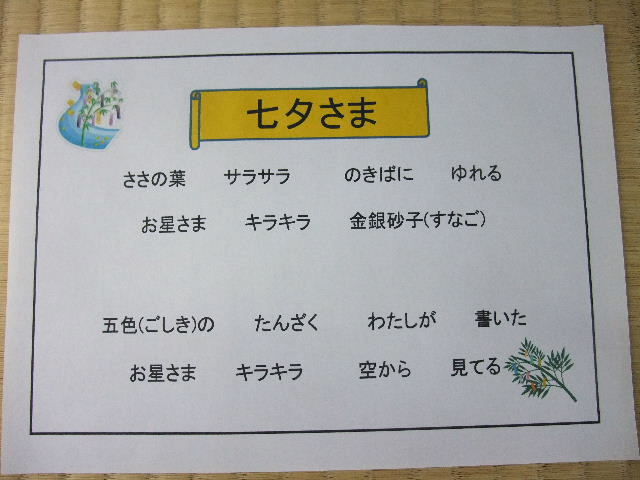 七夕さま
ささの葉 サラサラ のきばに ゆれる
お星さま キラキラ 金銀砂子(すなご)
五色(ごしき)の たんざく わたしが 書いた
お星さま キラキラ 空から 見てる